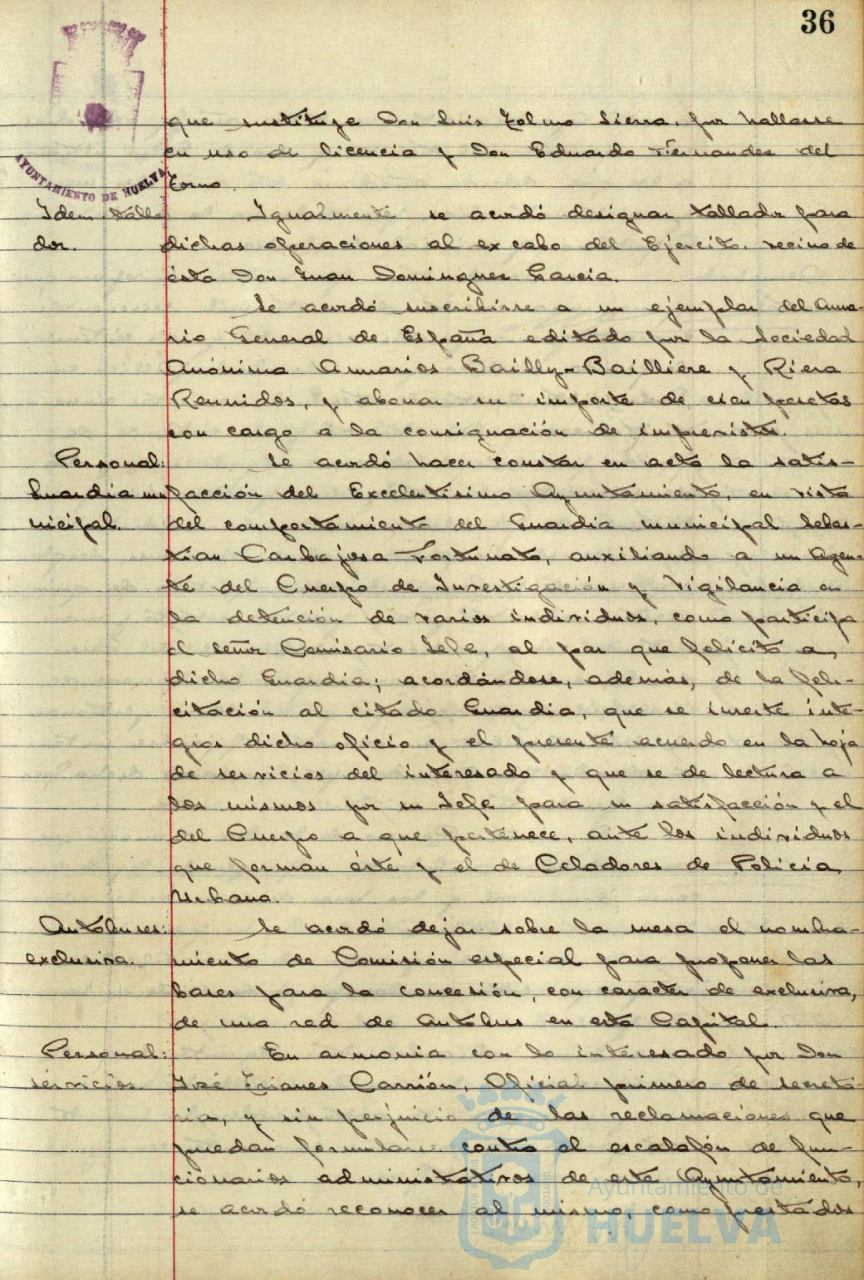 36
AYUNTAMIENTO DE HUELVA
que sustituye Don Luis Sierra, por hallarse
en uso de licencia y Don Eduardo Fernandez del
Torno.
Idem talla
dor.
Igualmente se acordó designar tallador para
dichas operaciones al ex cabo del Ejército, vecino de
ésta Don Juan Dominguez Garcia.
Se acordó suscribirse a un ejemplar del Anua-
rio General de España editado por la Sociedad
Anónima Anuarios Bailly-Bailliere y Riera
Reunidos, y abonar su importe de cien pesetas
con cargo a la consignación de imprevistos.
Personal:
Guardia mu
nicipal.
Se acordó hacer constar en acta la satis-
facción del Excelentisimo Ayuntamiento, en vista
del comportamiento del Guardia municipal Sebas-
tian Carbajosa Fortunato, auxiliando a un Agen-
te del Cuerpo de Investigación y Vigilancia en
la detención de varios individuos, como participa
el señor Comisario Jefe, al par que felicita a
dicho Guardia; acordándose, además, de la feli-
citación al citado Guardia, que se inserte inte-
gros dicho oficio y el presente acuerdo en la hoja
de servicios del interesado y que se de lectura a
los mismos por su Jefe para su satisfacción y el
del Cuerpo a que pertenece, ante los individuos
que forman éste y el de Celadores de Policia
Urbana.
Autobuses:
exclusiva.
Se acordó dejar sobre la mesa el nombra-
miento de Comisión especial para proponer las
bases para la concesión, con caracter de exclusiva,
de una red de Autobus en esta Capital.
Personal:
servicios.
En armonia con lo interesado por Don
José Trianes Carrión, Oficial primero de secreta-
rias, y sin perjuicio de las reclamaciones que
puedan formularse contra el escalafón de fun-
cionarios administrativos de este Ayuntamiento,
se acordó reconocer al mismo, como prestados
Ayuntamiento de
HUELVA